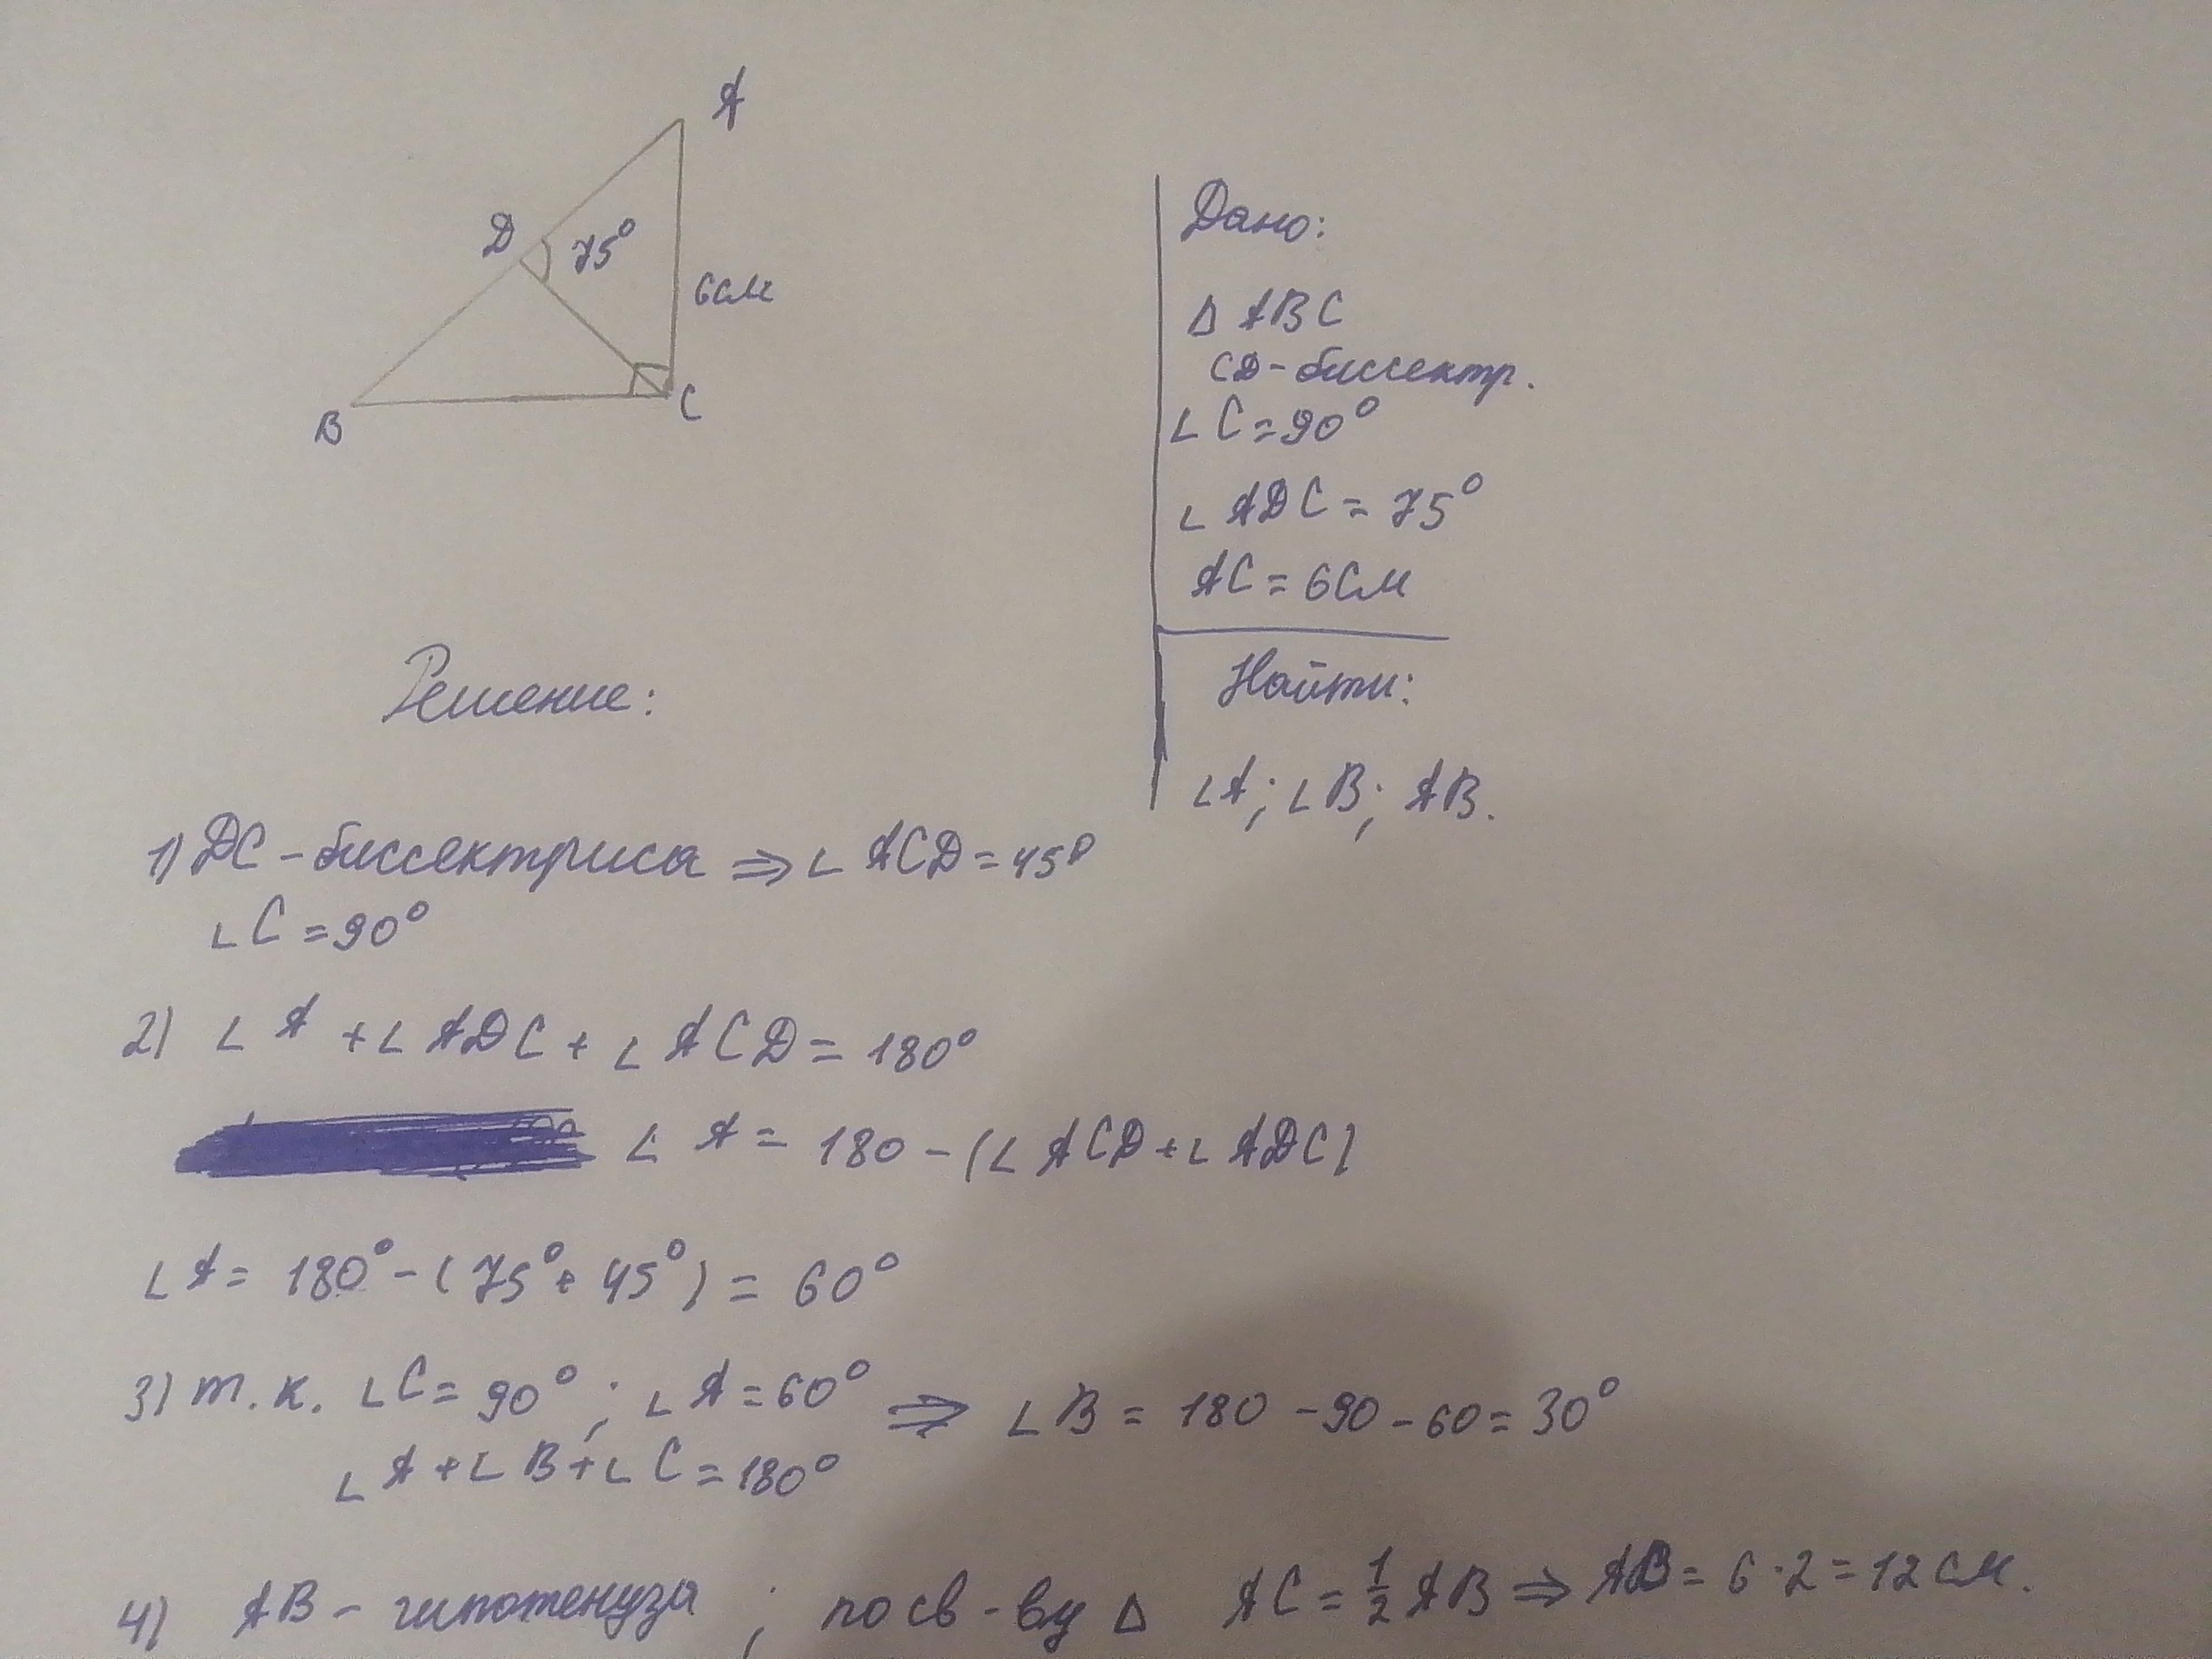 A
D
75°
6см
B
C
Дано:
Δ ABC
CD-биссектр.
∠C=90°
∠ADC=75°
AC=6см
Найти:
∠A; ∠B; AB.
Решение:
1) DC-биссектриса ⇒ ∠ACD=45°
∠C=90°
2) ∠A+∠ADC+∠ACD=180°
∠A=180-(∠ACD+∠ADC)
∠A=180°-(75°+45°)=60°
3) т.к. ∠C=90°; ∠A=60° ⇒ ∠B=180-90-60=30°
∠A+∠B+∠C=180°
4) AB-гипотенуза; по св-ву Δ AC=1/2 AB ⇒ AB=6·2=12см.